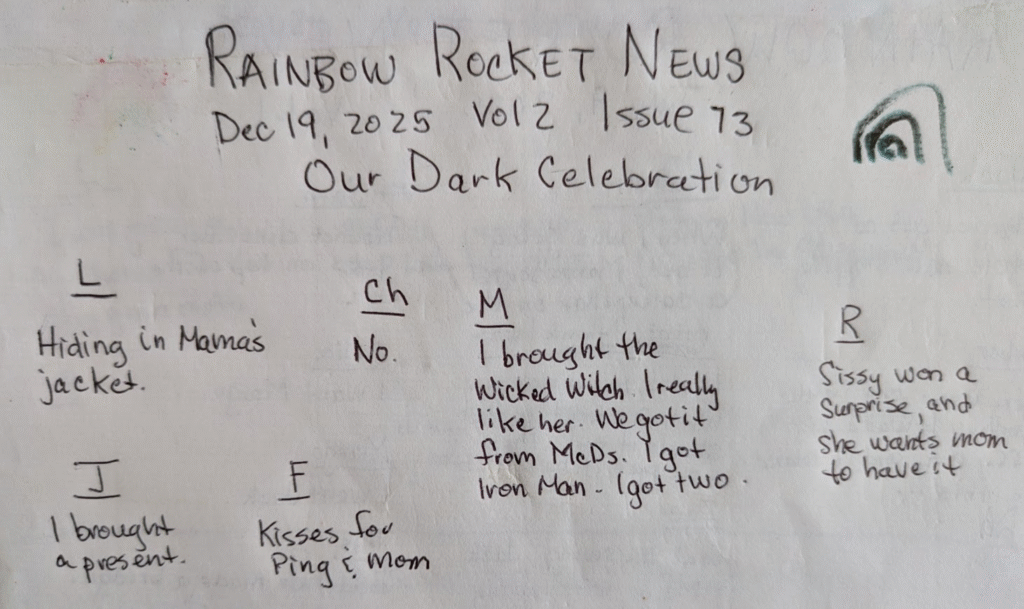 RAINBOW ROCKET NEWS
Dec 19, 2025 Vol 2 Issue 73
Our Dark Celebration
L
Hiding in Mama's
jacket.
Ch
No.
M
I brought the
Wicked Witch. I really
like her. We got it
from McDs. I got
Iron Man - I got two.
R
Sissy won a
Surprise, and
she wants mom
to have it
J
I brought
a present.
F
Kisses for
Ping & mom